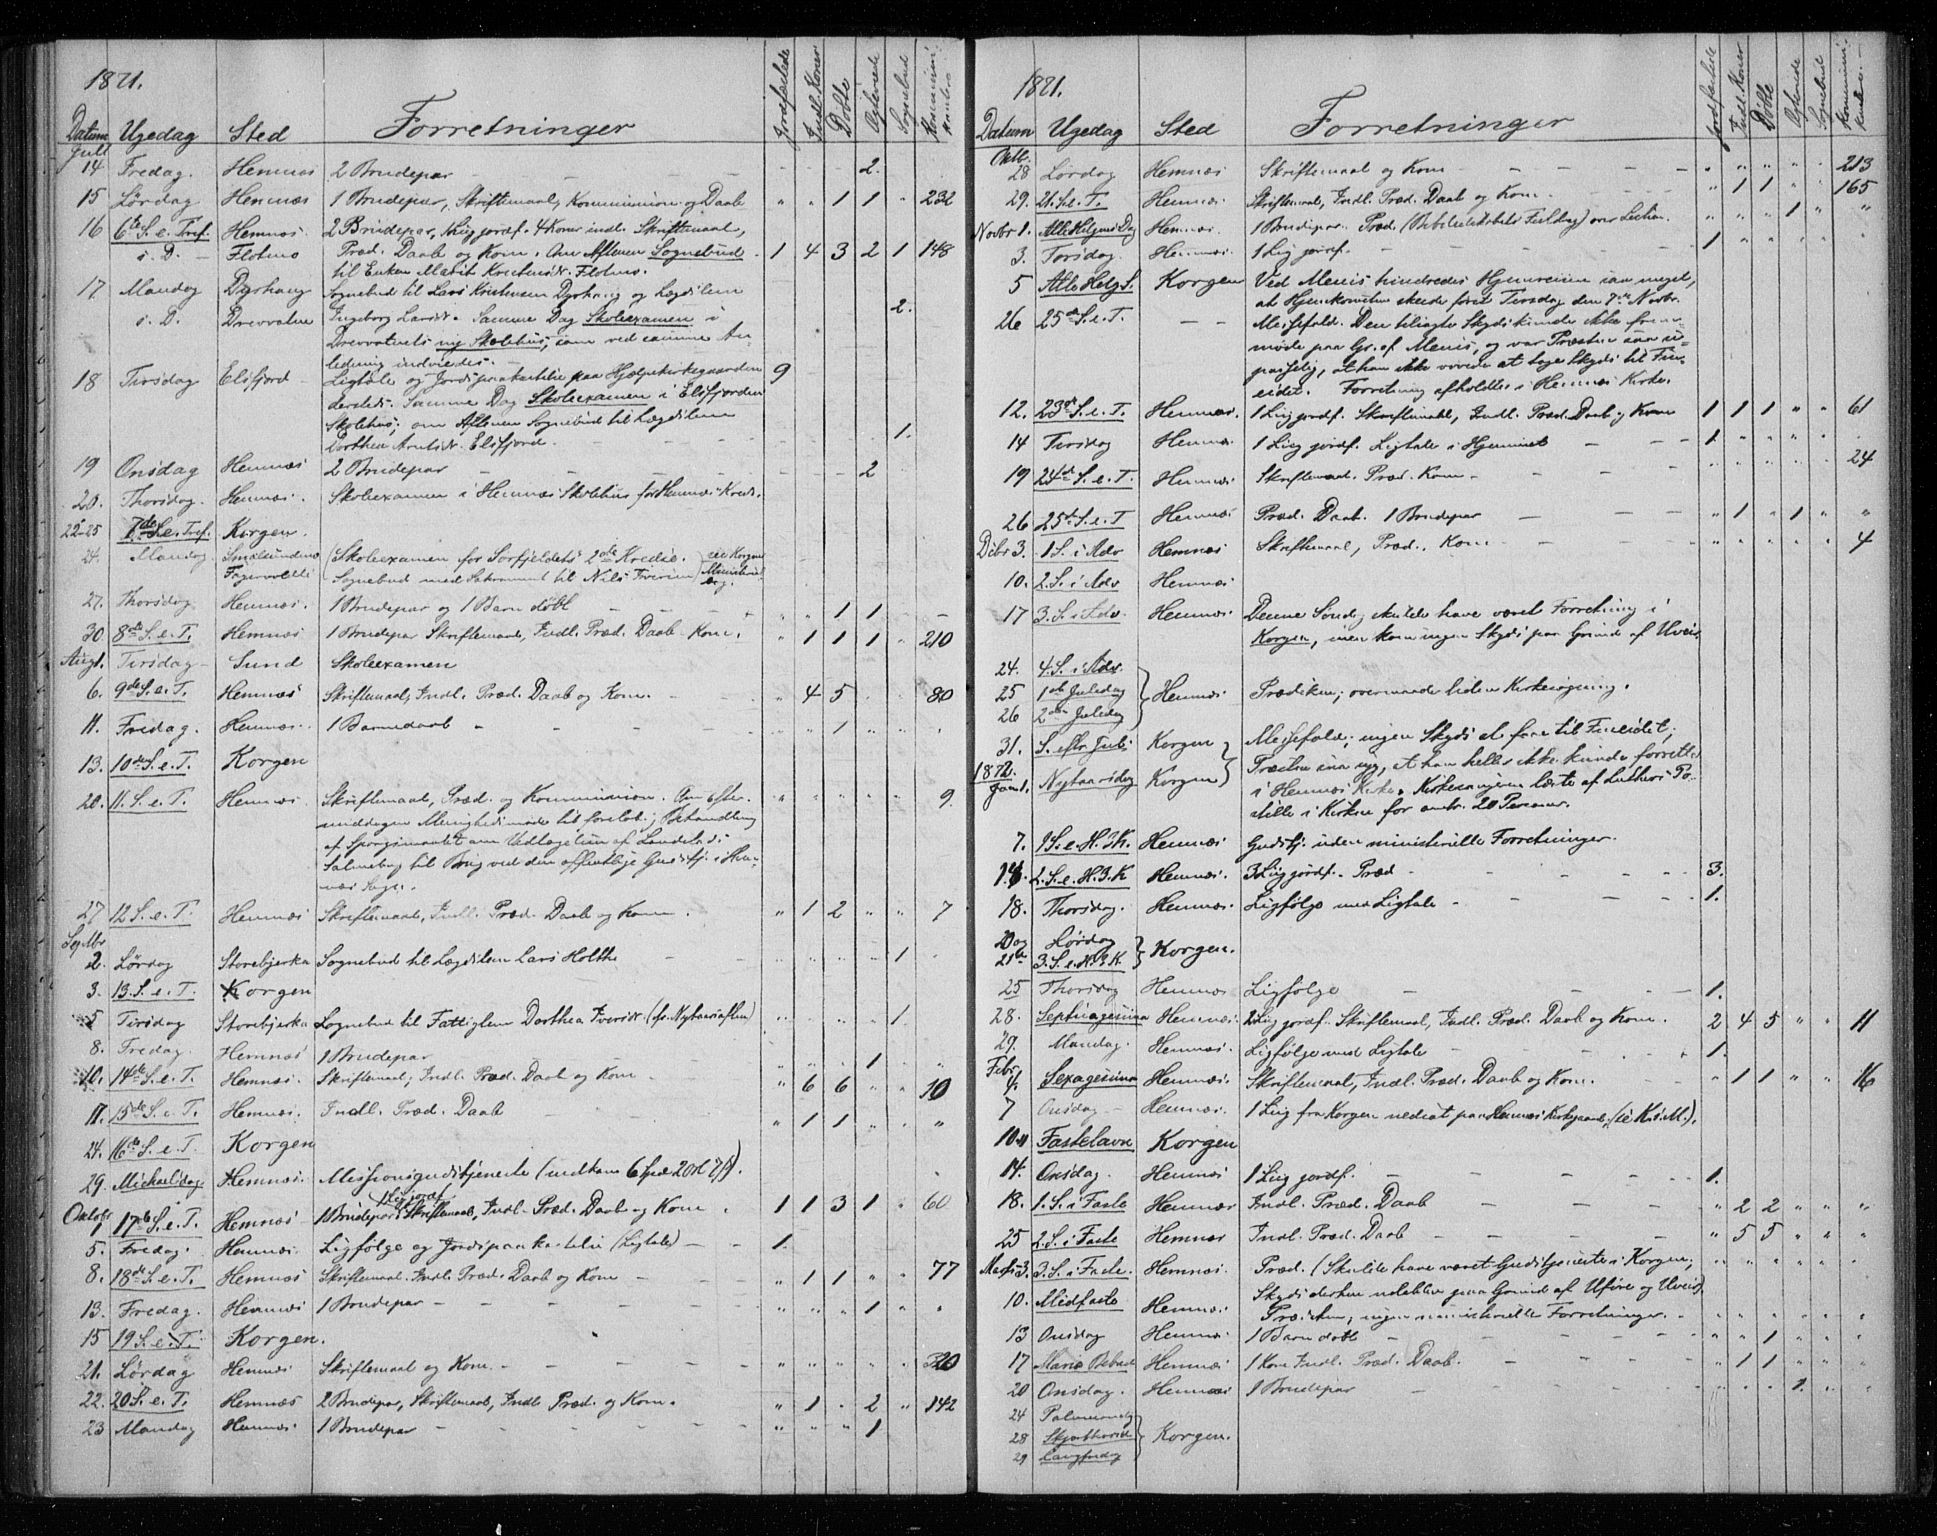 1871.
Datum Ugedag Sted Forretninger Jordfæstede Indl. Koner Døbte Ægteviede Sognebud Kommunikanter
Juli
14 Fredag. Hemnæs 2 Brudepar - 2.
15 Lørdag Hemnæs 1 Brudepar, Skriftemaal, Kommunion og Daab " " 1 1 " 232
16 6te S. e. Tref. Hemnæs. 2 Brudepar, 1 Lig jordf. 4 Koner indl. Skriftemaal,
s. D. - Flotmo Præd. Daab og Kom. Om Aftenen Sognebud 1 4 3 2 1 148
til Enken Marit Kristensdr. Flotmo.
17 Mandag Dyrhaug Sognebud til Lars Kristensen Dyrhaug og Lægdslem
s. D. Drevvatne Ingeborg Larsdr. Samme Dag Skoleexamen i 2.
Drevvatnets ny Skolehus, som ved samme An-
ledning indviedes. -
18 Tirsdag Elsfjord - Ligtale og Jordspaakastelse paa Hjælpekirkegaarden 9
dersteds. Samme Dag Skoleexamen i Elsfjorden
Skolehus; om Aftenen Sognebud til Lægdslem
Dorthea Arntsdr. Elsfjord. 1.
19 Onsdag Hemnæs 2 Brudepar - 2
20. Thorsdag. Hemnæs. Skoleexamen i Hemnæs Skolehus for Hemnæs Kreds.
22-25 7de S. e. Tref. Korgen.
24. Mandag (Skoleexamen for Sørfjeldets 2den Kreds. see Korgens
Fagervolli Sognebud med Sakrament til Nils Iversen) Ministerial
bog.
27. Thorsdag Hemnæs. 1 Brudepar og 1 Barn døbt - 1 1 -
30 8de S. e. T. Hemnæs 1 Brudepar Skriftemaal, Indl. Præd. Daab - Kom. " 1 1 1 " 210
Augt. Tirsdag - Sund Skoleexamen
6. 9de S. e. T. Hemnæs Skriftemaal, Indl. Præd. Daab og Kom. " 4 5 80
11. Fredag. Hemnæs. 1 Barnedaab - 1
13. 10de S. e. T. Korgen
20. 11. S. e. T. Hemnæs. Skriftemaal, Præd. og Kommunion. Om Efter- 9.
middagen Menighedsmøde til foreløbig Behandling
af Spørgsmaalet om Vedtagelsen af Landstads
Salmebog til Brug ved den offentlige Gudstj. i Hem-
næs Sogn.
27 12 S. e. T. Hemnæs Skriftemaal, Indl. Præd. Daab og Kom. " 1 2 " " 7
Septbr
2. Lørdag Storebjerka Sognebud til Lægdslem Lars Holthe 1
3. 13. S. e. T. Korgen
5 Tirsdag Storebjerka Sognebud til Fattiglem Dorthea Iversdr. (fra Nytaarsaften) 1
8. Fredag. Hemnæs 1 Brudepar 1
10. 14de S. e. T. Hemnæs. Skriftemaal, Indl. Præd. Daab og Kom - " 6 6 " " 10
17. 15de S. e. T. Hemnæs. Indl. Præd. Daab - " 1 1 "
24. 16de S. e. T. Korgen
29. Michaelsdag Hemnæs. Missionsgudstjeneste (indkom 6 Spd 20 sk 7/8).
1 Lig jordf.
Oktobr 1 17de S. e. T. Hemnæs - 1 Brudepar, Skriftemaal, Indl. Præd. Daab og Kom. 1 1 3 1 " 60
5. Fredag. Hemnæs. Ligfølge og Jordspaakastelse (Ligtale) - 1.
8. 18de S. e. T. Hemnæs Skriftemaal. Indl. Præd. Daab og Kom - " 1 1 " 77
13. Fredag. Hemnæs 1 Brudepar - " " " 1 "
15 19 S. e. T. Korgen.
21. Lørdag Hemnæs Skriftemaal og Kom. - " " " " " 320
22. 20 S. e. T. Hemnæs 2 Brudepar, Skriftemaal, Indl. Præd. og Kom. " 1 . 2 " 142
23 Mandag Hemnæs 1 Brudepar - 1
1871.
Datum Ugedag Sted Forretninger Jordfæstede Indl. Koner Døbte Ægteviede Sognebud Kommunikanter
Oktbr.
28 Lørdag Hemnæs Skriftemaal og Kom - 213
29. 21. S. e. T. Hemnæs. Skriftemaal, Indl. Præd. Daab og Kom " 1 1 165
Novbr 1. Alle Helgens Dag Hemnæs. 1 Brudepar. Præd. over Lektien. " " " 1 " "
3. Torsdag. Hemnæs. 1 Lig jordf. 1
5 Alle Helg. S. Korgen Ved Menis hindredes Hjemreisen saa meget,
at Hjemkomsten skede først Tirsdag den 7de Novbr.
26 25de S. e. T. - - Messefald. Den tilsagte Skyds kunde ikke frem-
møde paa Gr. af Menis, og var Præsten saa u-
passelig, at han ikke vovede at tage Skyds til Fin-
eidet. Forretning afholdtes i Hemnæs Kirke.
12. 23de S. e. T. Hemnæs. 1 Lig jordf. Skriftemaal, Indl. Præd. Daab og Kom 1 1 1 " " 61
14 Tirsdag Hemnæs 1 Lig jordf. Ligtale i Hjemmet - 1.
19 24de S. e. T. Hemnæs Skriftemaal. Præd. Kom - 24
26 25de S. e. T Hemnæs Præd. Daab. 1 Brudepar - " 1 " 1 " "
Dcbr 3. 1 S. i Adv Hemnæs Skriftemaal, Præd., Kom - 4
10. 2. S. i Adv Hemnæs
17 3. S. i Adv. Hemnæs Denne Søndag skulde have været Forretning i
Korgen, men kom ingen Skyds paa Grund af Uveir.
24. 4. S. i Adv.
25 1ste Juledag Hemnæs Prædiken; overmaade liden Kirkesøgning.
26 2den Juledag
31. S. efter Jul. Korgen Messefald; ingen Skyds at faae til Fineidet;
1872. Præsten saa syg, at han heller ikke kunde forrette
Jan. 1. Nytaarsdag Korgen i Hemnæs Kirke. Kirkesangeren læste af Luthers Po-
stille i Kirken for omtr. 20 Personer.
7. 1 S. e. H. 3 K. Hemnæs Gudstj. uden ministerielle Forretninger.
14. 2. S. e. H. 3. K Hemnæs. 3 Lig jordf. - Præd - 3.
18. Thorsdag. Hemnæs. Ligfølge med Ligtale - 1.
20 og Lørdag
21de 3. S. e. H. 3 K. Korgen.
25 Thorsdag Hemnæs Ligfølge - 1.
28. Septuagesima Hemnæs. 2 Lig jordf. Skriftemaal, Indl. Præd. Daab og Kom. 2 4 5 " " 11
29. Mandag. Hemnæs. Ligfølge med Ligtale - 1.
Febr.
4. Sexagesima Hemnæs. Skriftemaal, Indl. Præd. Daab og Kom. - " 1 1 " " 16
7 Onsdag - Hemnæs. 1 Lig fra Korgen nedsat paa Hemnæs Kirkegaard, (se K.s M.).
10-11 Fastelavn Korgen
14. Onsdag. Hemnæs 1 Lig jordf. - 1.
18. 1. S. i Faste Hemnæs Indl. Præd. Daab - " 2 2 " " "
25 2. S. i Faste Hemnæs Indl. Præd. Daab - " 5 5 " " "
Marts 3. 3. S. i Faste. Hemnæs. Præd. (Skulde have været Gudstjeneste i Korgen;
10. Midfaste Hemnæs. Skyds dertil udeblev paa Grund af Uføre og Uveir.
Prædiken; ingen ministerielle Forretninger.
13 Onsdag Hemnæs. 1 Barn døbt - 1
17 Maria Bebud. Hemnæs 1 Kone Indl. Præd. Daab. - " 1 1 "
20 Onsdag. Hemnæs 1 Brudepar - 1
24 Palmesøndag
28 Skjærthorsd. Korgen.
29 Langfredag